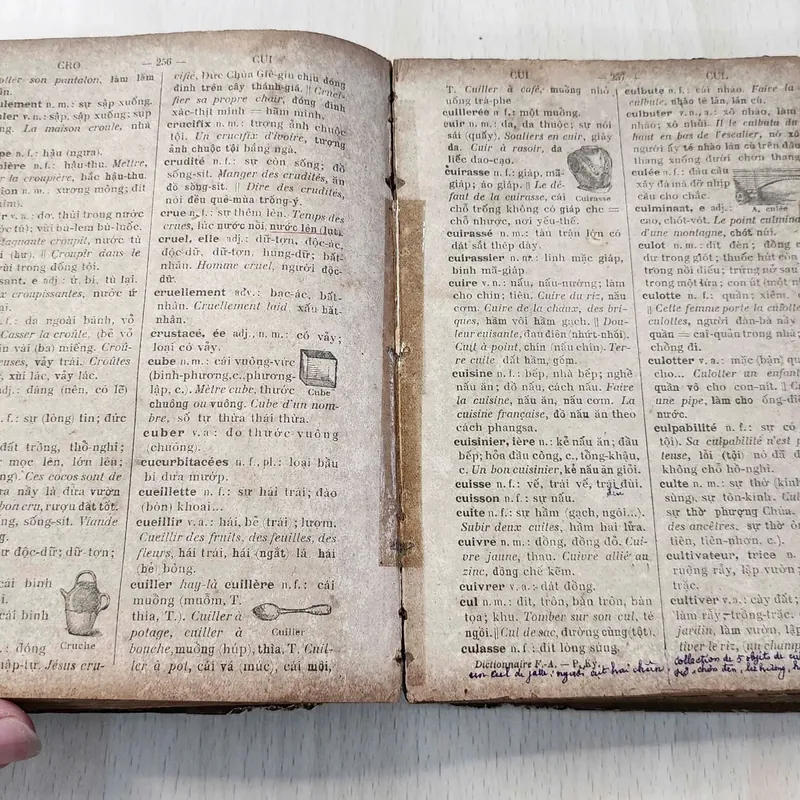 CRO — 256 — CUI
oller son pantalon, làm lấm
ulement n. m.: sự sập xuống.
ler v. n.: sập, sập xuống; sụp
ng. La maison croule, nhà
pe n. f.: hậu (ngựa).
ière n. f.: hậu-thu. Mettre,
r la croupière, bắc hậu-thu.
ion n. m.: xương mông; đít
r v. n.: dơ, thúi trong nước
c tù); vùi bù-lem bù-luốc.
taquante croupit, nước tù
i hư) || Croupir dans le
vùi trong đống tội.
sant, e adj.: ứ, bị, tù lại.
x croupissantes, nước ứ
.f.: da ngoài bánh, vỏ
Casser la croûte, (bẻ vỏ
n vài (ba) miếng. Croû-
euses, vảy trái. Croûtes
, xùi lác, vảy lác.
adj.: đáng (nên, có lẽ)
.f.: sự (lòng) tin; đức
đất trồng, thổ-nghi;
mọc lên, lớn lên;
Ces cocos sont de
ừa này là dừa vườn
bon cru, rượu đất tốt.
ng, sống-sít. Viande
g.
sự độc-dữ; dữ-tợn;
cái bình
cái bình
Cruche
.: đóng
hập-tự. Jésus cru-
cifié, Đức Chúa Giê-giu chịu đóng
đinh trên cây thánh-giá. || Cruci-
fier sa propre chair, đóng đinh
xác-thịt mình = hãm mình.
crucifix n. m.: tượng ảnh chuộc
tội. Un crucifix d'ivoire, tượng
ảnh chuộc tội bằng ngà.
crudité n. f.: sự còn sống; đồ
sống-sít. Manger des crudités, ăn
đồ sống-sít. || Dire des crudités,
nói đều quê-mùa trống-ý.
crue n. f.: sự thêm lên. Temps des
crues, lúc nước nổi, nước lên (lụt).
cruel, elle adj.: dữ-tợn, độc-ác,
độc-dữ, dữ-tợn, hung-dữ; bất-
nhân. Homme cruel, người độc-
dữ.
cruellement adv.: bạc-ác, bất-
nhân. Cruellement laid xấu bất-
nhân.
crustacé, ée adj., n. m.: có vảy;
loại có vảy.
cube n. m.: cái vuông-vức
(bình-phương,c.,phương-
lập, c.). Mètre cube, thước Cube
chuông ou vuông. Cube d'un nom-
bre, số tự thừa thái thừa.
cuber v. a: đo thước-vuông
(chuông).
cucurbitacées n. f., pl.: loại bầu
bí dưa mướp.
cueillette n. f.: sự hái trái; đào
(bòn) khoai...
cueillir v. a.: hái, bẻ (trái); lượm.
Cueillir des fruits, des feuilles, des
fleurs, hái trái, hái (ngắt) lá hái
(bẻ) bông.
cuiller hay-là cuillère n. f.: cái
muỗng (muỗm, T.
thìa, T.). Cuiller à
potage, cuiller à Cuiller
bouche, muỗng (húp), thìa, T. Cuil-
ler à pot, cái vá (múc), cái môi,
CUI — 257 — CUL
T. Cuiller à café, muỗng nhỏ
uống trà-phe
cuillerée n. f.: một muỗng.
cuir n. m.: da, da thuộc; sự nói
sái (quấy). Souliers en cuir, giày
da. Cuir à rasoir, da
liếc dao-cạo.
cuirasse n. f.: giáp, mã-
giáp; áo giáp. || Le dé- Cuirasse
faut de la cuirasse, cái
chỗ trống không có giáp che =
chỗ nhược, nơi yếu-thế.
cuirassé n. m.: tàu trận lớn có
dát sắt thép dày.
cuirassier n. m.: lính mặc giáp,
binh mã-giáp.
cuire v. n.: nấu, nấu-nướng; làm
cho chín; tiêu. Cuire du riz, nấu
cơm. Cuire de la chaux, des bri-
ques, hầm vôi hầm gạch. || Dou-
leur cuisante, đau điến (nhứt-nhối).
Cuit à point, chín (nấu chín). Ter-
re cuite đất hầm, gốm.
cuisine n. f.: bếp, nhà bếp; nghề
nấu ăn; đồ nấu, cách nấu. Faire
la cuisine, nấu ăn, nấu cơm. La
cuisine française, đồ nấu ăn theo
cách phangsa.
cuisinier, ière n.: kẻ nấu ăn; đầu
bếp; hỏa đầu công, c., tổng-khậu,
c. Un bon cuisinier, kẻ nấu ăn giỏi.
cuisse n. f.: vế, trái vế, trái đùi.
cuisson n. f.: sự nấu.
cuite n. f.: sự hầm (gạch, ngói...).
Subir deux cuites, hầm hai lửa.
cuivre n. m.: đồng, đồng đỏ. Cui-
vre jaune, thau. Cuivre allié au
zinc, đồng chế kẽm.
cuivrer v. a.: dát đồng.
cul n. m.: đít, trôn, bàn trôn, bàn
tọa; khu. Tomber sur son cul, té
ngồi. || Cul de sac, đường cùng (tột).
culasse n. f.: đít lòng súng.
Dictionnaire F.-A. — P. Ký.
culbute n. f.: cái nhào. Faire la
culbute, nhào té lăn, lăn cù.
culbuter v. a.: xô nhào, làm
nhào; xô nhủi. Il le culbuta du
haut en bas de l'escalier, nó xô
người ấy té nhào lăn cù trên đầu
thang xuống dưới chơn thang.
culée n. f.: đầu cầu
xây đá mà đỡ nhịp
cầu cho chắc. A, culée
culminant, e adj.:
cao, chót-vót. Le point culminant
d'une montagne, chót núi.
culot n. m.: đít đèn; đồng c
dư trong giốt; thuốc hút còn
trong nồi điếu; trứng nở sau
trong một lứa; con út (một nh
culotte n. f.: quần; xiêm. c
|| Cette femme porte la culotte
culottes, người đàn-bà nây
quần = cai-quản trong nhà;
chồng đi.
culotter v. a.: mặc (bận) quầ
cho... Culotter un enfant
quần vô cho con-nít. C
une pipe, làm cho ống-điế
nước.
culpabilité n. f.: sự có
tội). Sa culpabilité n'est p
teuse, lỗi (tội) nó đã đ
không chỗ hồ-nghi.
culte n. m.: sự thờ (kính
sùng), sự tôn-kính. Cul
sự thờ phượng Chúa.
des ancêtres, sự thờ ôn
tiên, tiên-nhơn, c.).
cultivateur, trice n.
ruộng rẫy, lập vườn;
trắc.
cultiver v. a.: cày đất;
làm rẫy, trồng-trắc.
jardin, làm vườn, lập
tiver le riz, un champ
collection de 5 objets de cui
un cul de jatte: người cụt hai chân,